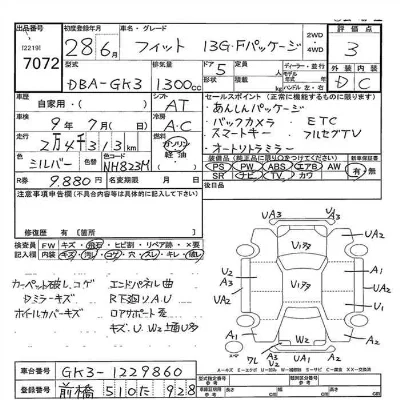 出品番号
初度登録年月
車名・グレード
2WD
・4WD
評価点
[2219]
7072
28年6月
フィット
13G・Fパッケージ
3
型式
排気量
ドア
外装
内装
DBA-GK3
1300cc
5
D
C
車歴
シフト
セールスポイント(正常に機能するものに限ります)
自家用・
AT
・あんしんパッケージ
車検
冷房
・バックカメラ ETC
9年7月
A・C
・スマートキー ・フルセグTV
走行
燃料
・オートリトラミラー
2万4千313
ガソリン
軽油
色
色替
色No
シルバー
NH823M
装備品(純正品に限り○をつけてください)
新車保証書
PS PW ABS エアB AW
SR ナビ TV カワ
有・無
R券
9,880円
名変期限
月 日
後日品
注意事項申告欄(不具合内容等は具体的に記入して下さい)
修復歴 有【箇所 】
検査員
記入欄
FW キズ・飛石・ヒビ割・リペア跡・×要
内装 キズ・汚レ・コゲ・穴・スレ・キレ・破レ
カーペット破レ、コゲ
エンドパネル曲
Dミラーキズ
R下廻りAU
ホイルカバーキズ
ロアサポート歪
キズ、U、W2補U多
UA3
UA3
U1多
U2
A3
A1
U1
U1多
U2
A1
A2
W2
A2
U1
ワレ
UA3
A2
車台番号
GK3-1229860
登録番号
前橋 510た 928
型式指定番号
類別区分番号
長さ
cm
幅
cm
高さ
cm